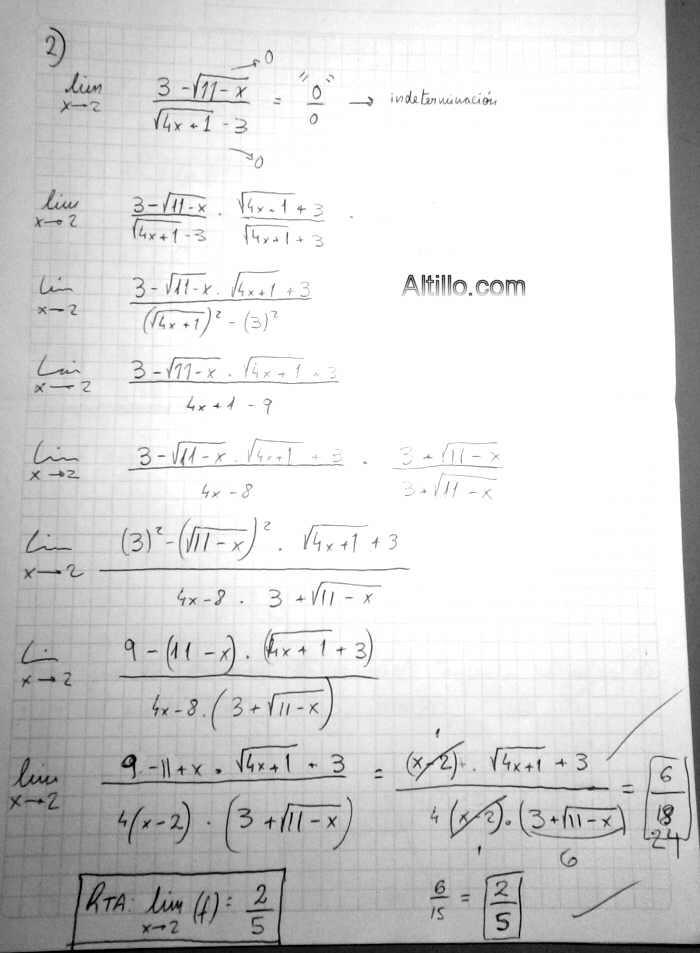 2)
lim x→2 3 - √11-x / √4x+1 - 3 = "0"/0 → indeterminación
→0
→0
lim x→2 3 - √11-x / √4x+1 - 3 · √4x+1 + 3 / √4x+1 + 3 .
Altillo.com
lim x→2 3 - √11-x · √4x+1 + 3 / (√4x+1)² - (3)²
lim x→2 3 - √11-x · √4x+1 + 3 / 4x+1 - 9
lim x→2 3 - √11-x · √4x+1 + 3 / 4x-8 · 3 + √11-x / 3 + √11-x
lim x→2 (3)² - (√11-x)² · √4x+1 + 3 / 4x-8 · 3 + √11-x
lim x→2 9 - (11-x) · (√4x+1 + 3) / 4x-8 · (3 + √11-x)
lim x→2 9 - 11 + x · √4x+1 + 3 / 4(x-2) · (3 + √11-x) = (x-2) · √4x+1 + 3 / 4(x-2) · (3 + √11-x) = 6 / 18 24
1
1
6
RTA: lim x→2 (f) = 2/5
6/15 = 2/5